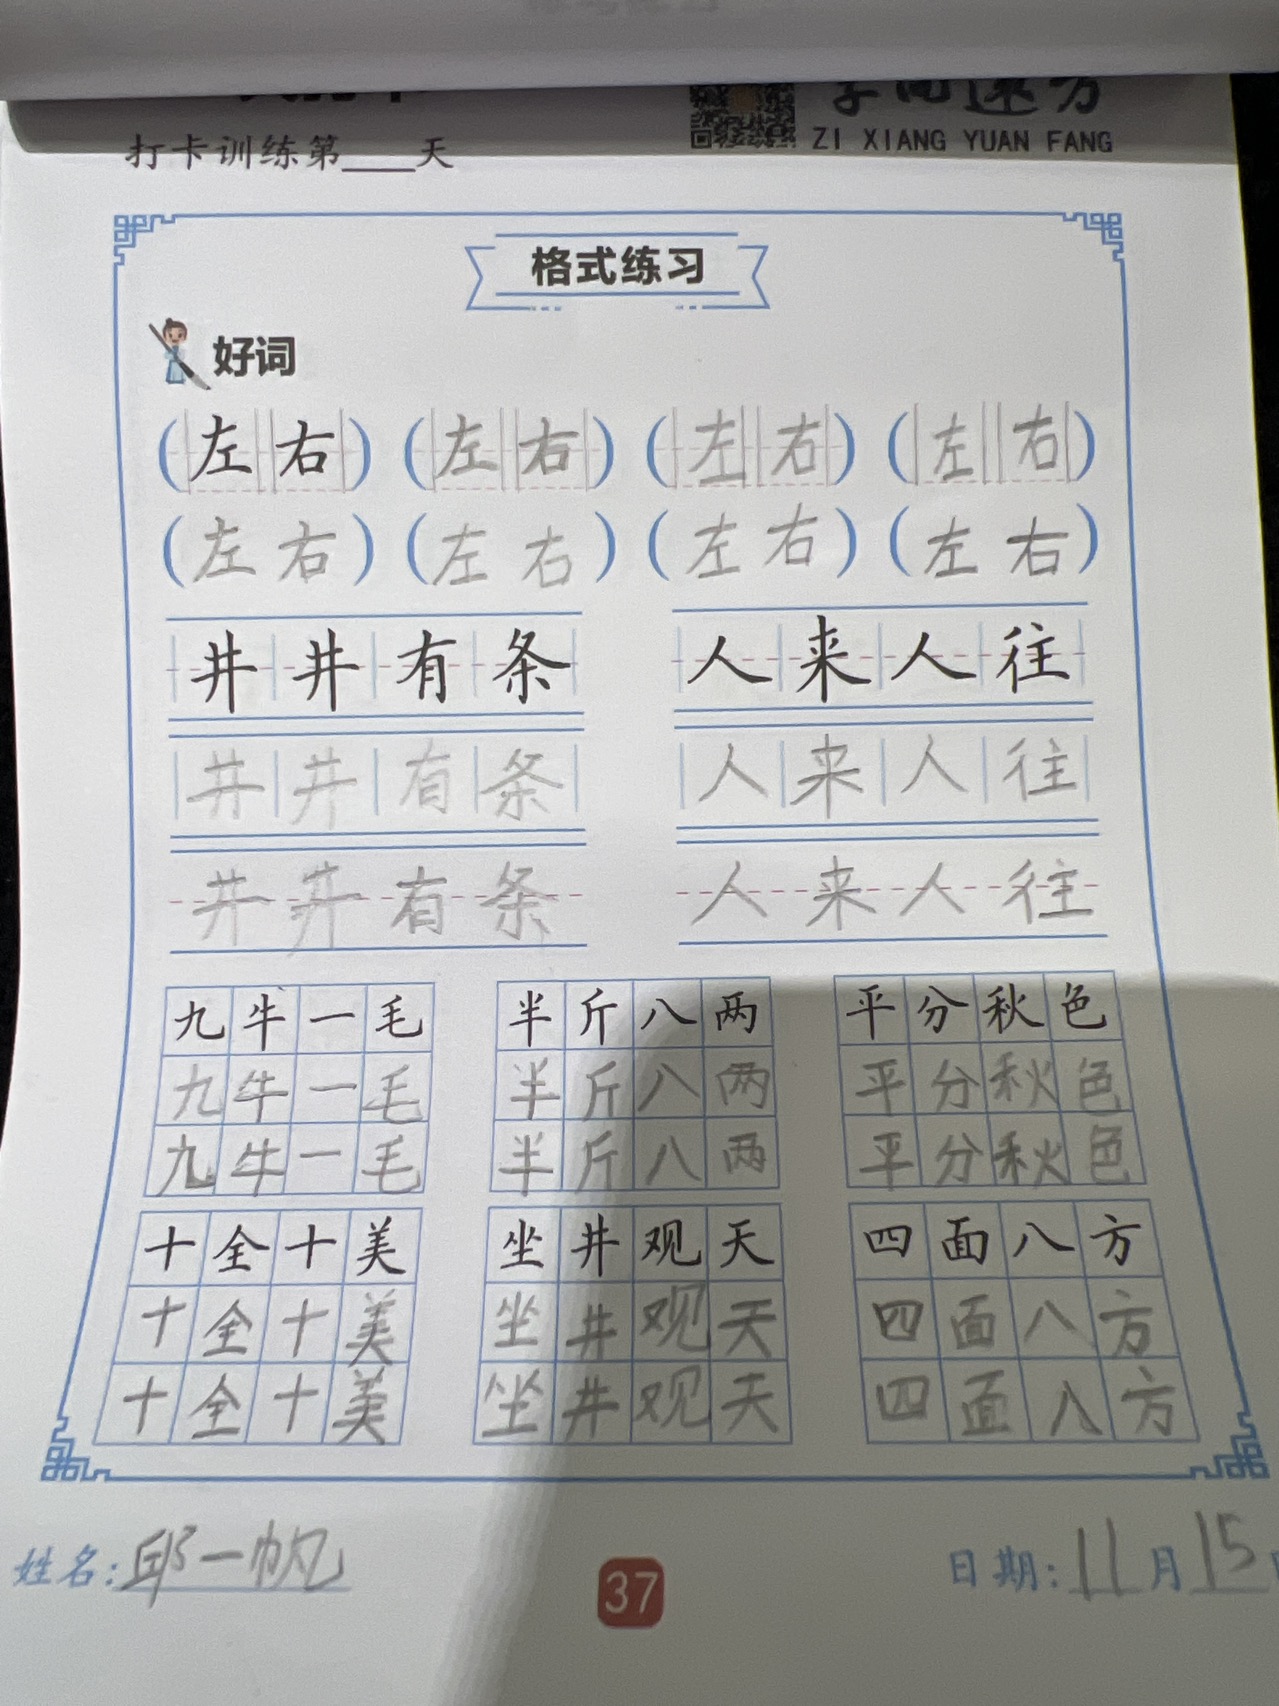 打卡训练第___天
ZI XIANG YUAN FANG
格式练习
好词
(左右) (左右) (左右) (左右)
(左右) (左右) (左右) (左右)
井井有条 人来人往
井井有条 人来人往
井井有条 人来人往
九牛一毛 半斤八两 平分秋色
九牛一毛 半斤八两 平分秋色
九牛一毛 半斤八两 平分秋色
十全十美 坐井观天 四面八方
十全十美 坐井观天 四面八方
十全十美 坐井观天 四面八方
姓名:邱一帆 37 日期:11月15